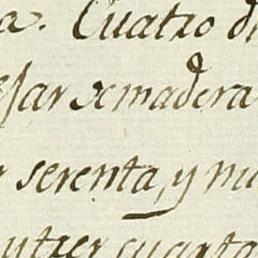 a. Cuatro di
sar de madera
r serenta, y nu
y tres cuarta